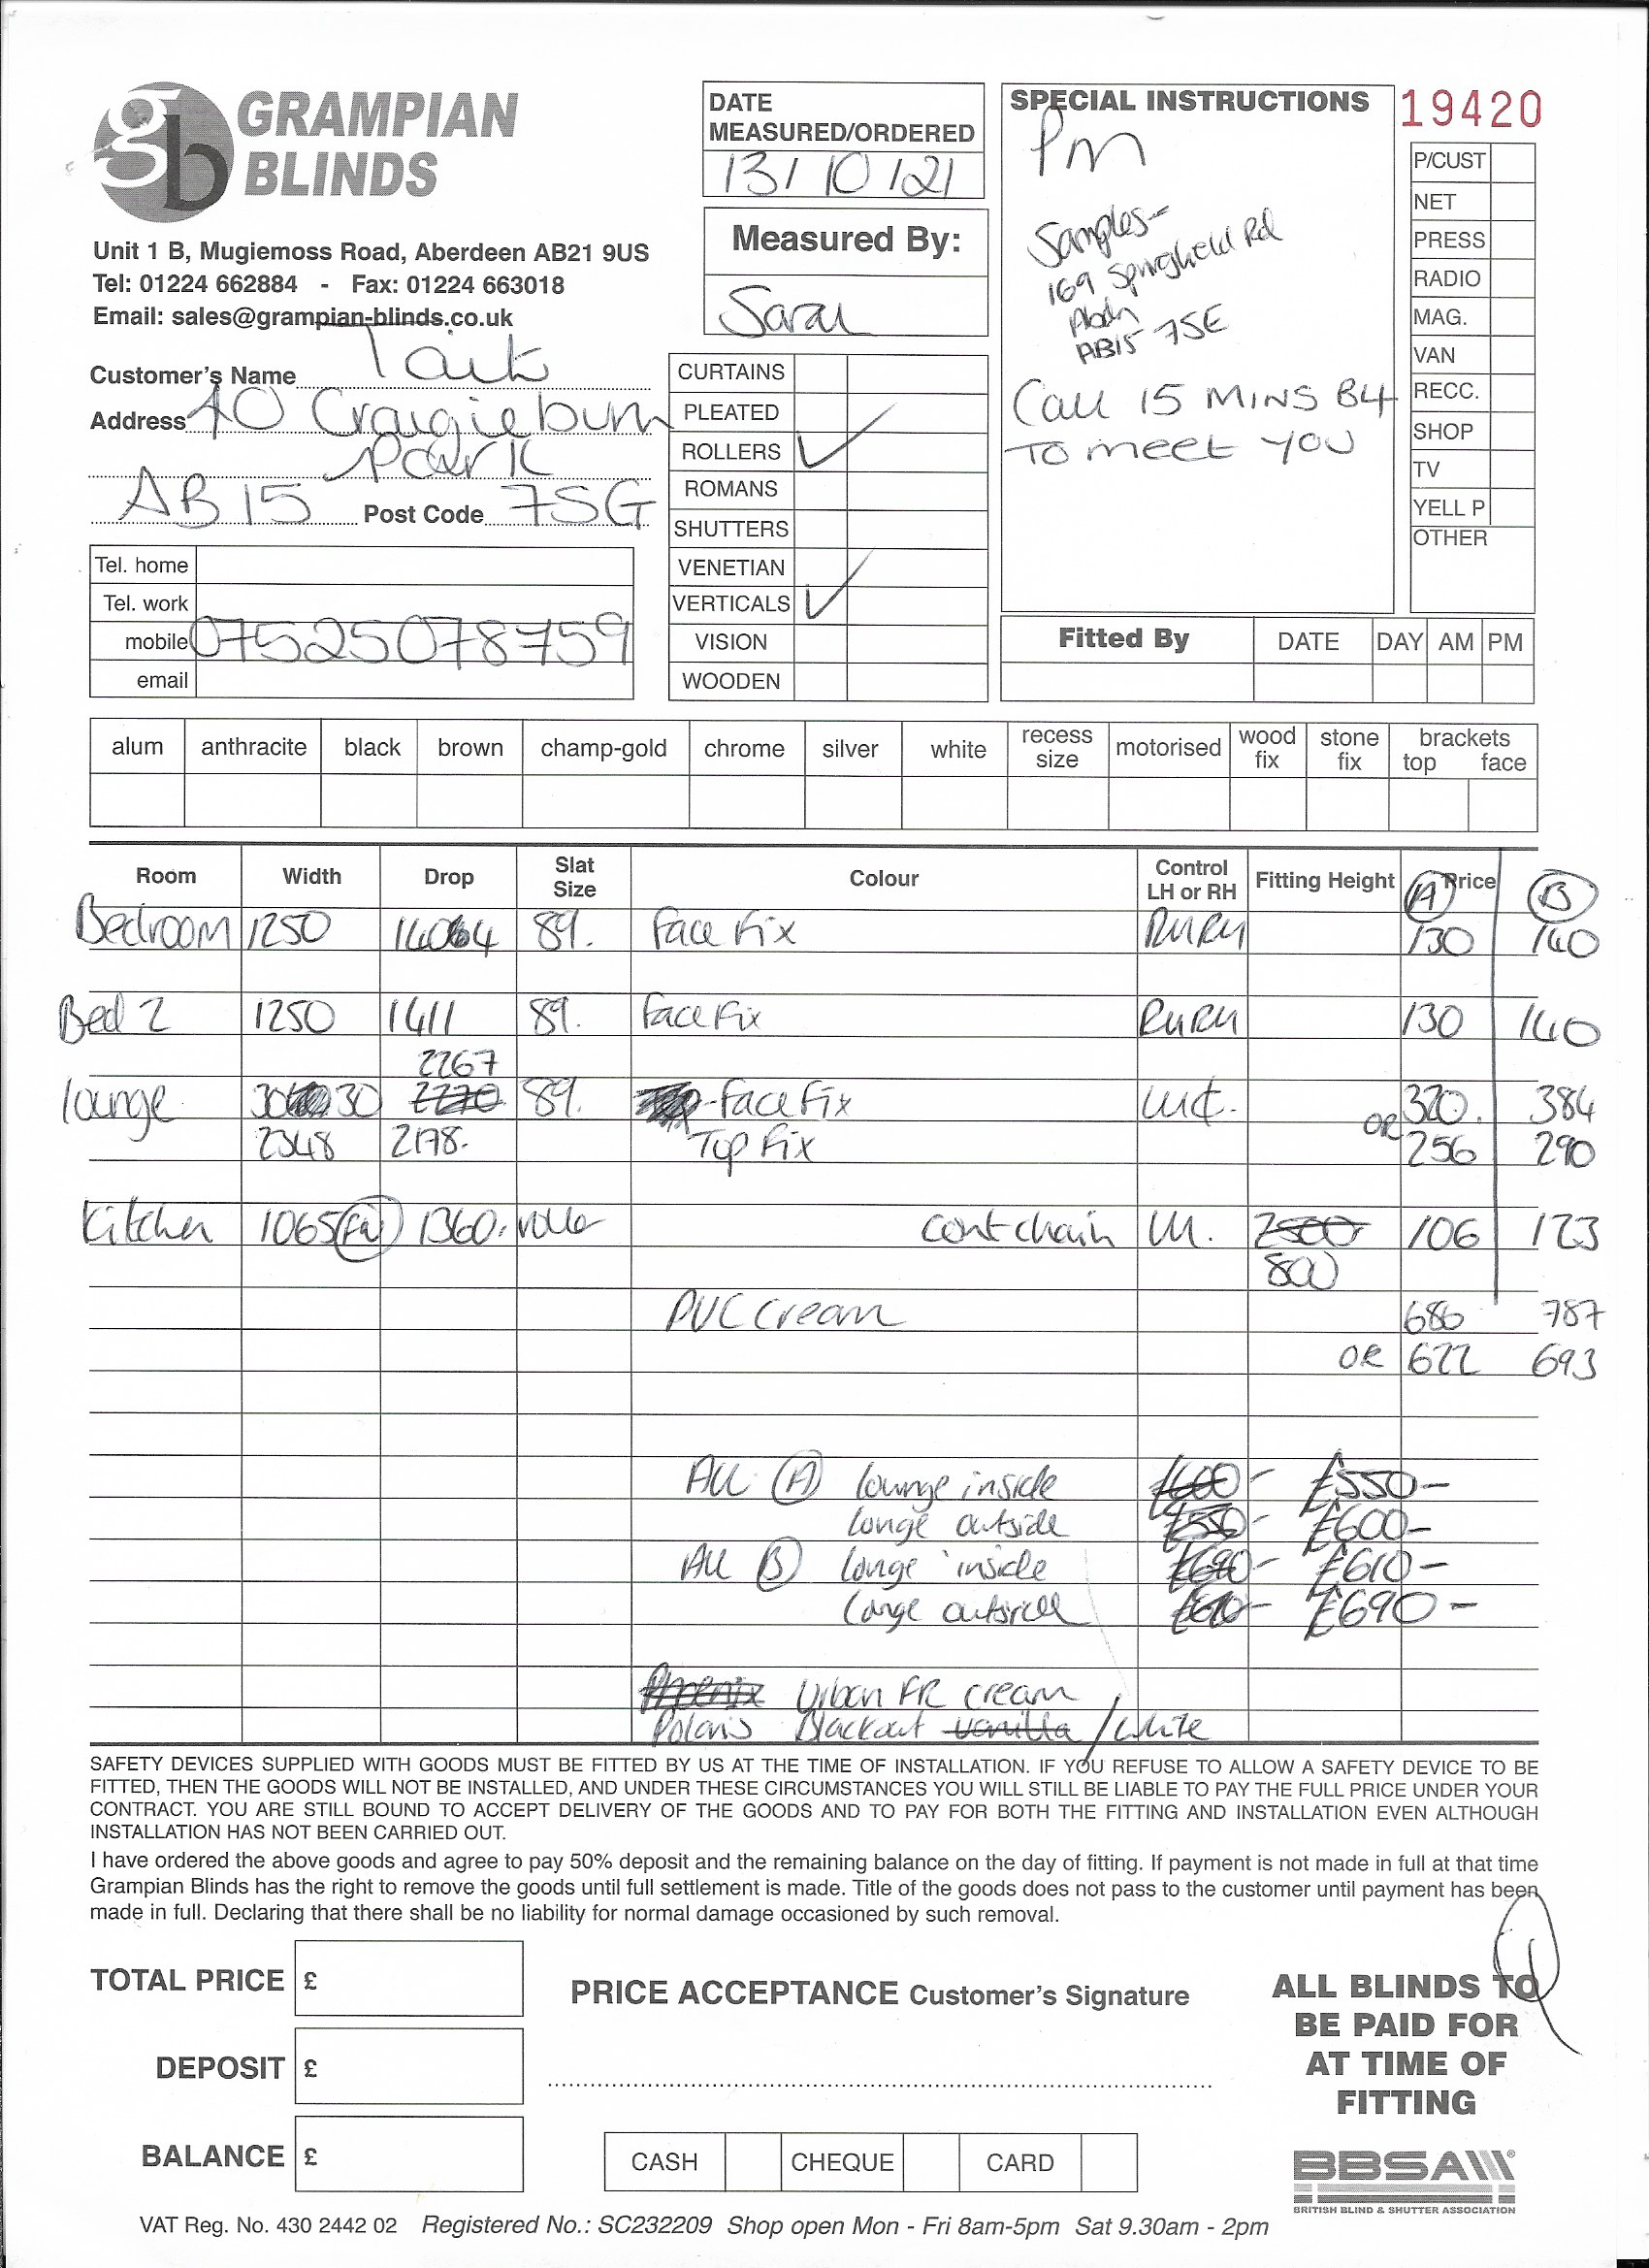 GRAMPIAN
BLINDS
Unit 1 B, Mugiemoss Road, Aberdeen AB21 9US
Tel: 01224 662884 - Fax: 01224 663018
Email: sales@grampian-blinds.co.uk
Customer's Name Tait
Address 40 Craigieburn
Park
AB15 Post Code 7SG
Tel. home
Tel. work
mobile 07525078759
email
DATE
MEASURED/ORDERED
13/10/21
Measured By:
Sarah
CURTAINS
PLEATED
ROLLERS ✓
ROMANS
SHUTTERS
VENETIAN
VERTICALS ✓
VISION
WOODEN
SPECIAL INSTRUCTIONS
Pm
Samples-
169 Springfield Rd
Abdn
AB15 7SE
Call 15 MINS B4
TO meet you
19420
P/CUST
NET
PRESS
RADIO
MAG.
VAN
RECC.
SHOP
TV
YELL P
OTHER
Fitted By DATE DAY AM PM
alum anthracite black brown champ-gold chrome silver white recess size motorised wood fix stone fix brackets top face
Room Width Drop Slat Size Colour Control LH or RH Fitting Height Price A B
Bedroom 1250 89. Face Fix RHRH 130 140
Bed 2 1250 1411 89. Face Fix RHRH 130 140
2267
lounge 3030 2270 89. - Face Fix 320. 384
2348 2178. Top Fix OR 256 290
Kitchen 1065 1360. roller cont chain LH. 2500 106 123
800
PVC Cream 686 787
OR 622 693
ALL A lounge inside £600- £550-
longe outside £550- £600-
ALL B longe inside £690- £610-
longe outside £610- £690-
Phoenix Urban FR cream
Polaris Blackout vanilla / white
SAFETY DEVICES SUPPLIED WITH GOODS MUST BE FITTED BY US AT THE TIME OF INSTALLATION. IF YOU REFUSE TO ALLOW A SAFETY DEVICE TO BE
FITTED, THEN THE GOODS WILL NOT BE INSTALLED, AND UNDER THESE CIRCUMSTANCES YOU WILL STILL BE LIABLE TO PAY THE FULL PRICE UNDER YOUR
CONTRACT. YOU ARE STILL BOUND TO ACCEPT DELIVERY OF THE GOODS AND TO PAY FOR BOTH THE FITTING AND INSTALLATION EVEN ALTHOUGH
INSTALLATION HAS NOT BEEN CARRIED OUT.
I have ordered the above goods and agree to pay 50% deposit and the remaining balance on the day of fitting. If payment is not made in full at that time
Grampian Blinds has the right to remove the goods until full settlement is made. Title of the goods does not pass to the customer until payment has been
made in full. Declaring that there shall be no liability for normal damage occasioned by such removal.
TOTAL PRICE £
DEPOSIT £
BALANCE £
PRICE ACCEPTANCE Customer's Signature
CASH CHEQUE CARD
ALL BLINDS TO
BE PAID FOR
AT TIME OF
FITTING
BBSA
BRITISH BLIND & SHUTTER ASSOCIATION
VAT Reg. No. 430 2442 02 Registered No.: SC232209 Shop open Mon - Fri 8am-5pm Sat 9.30am - 2pm